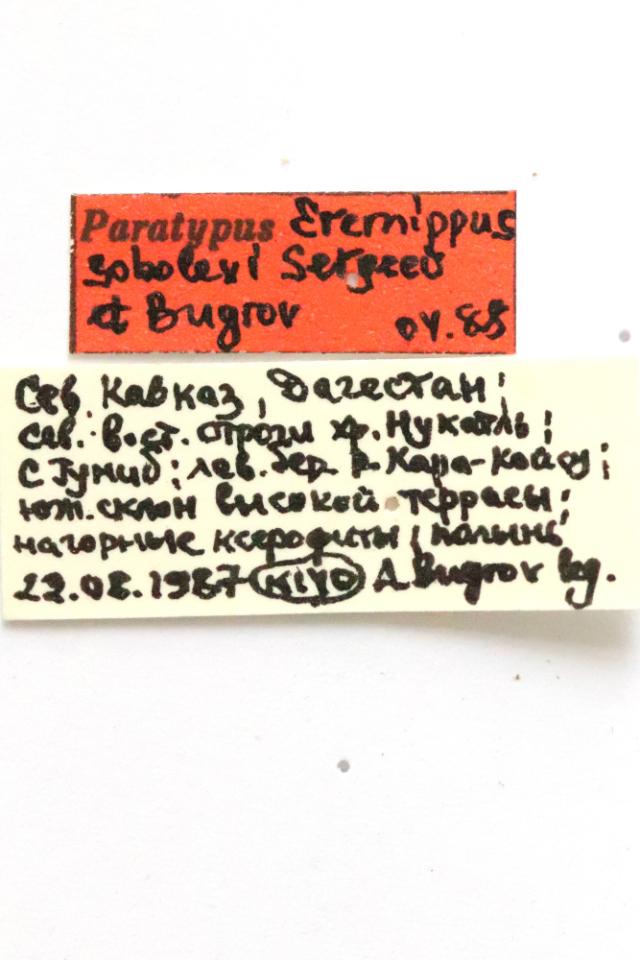 Paratypus Eremippus
sobolevi Sergeev
et Bugrov 0V.88
Сев. Кавказ, Дагестан;
сев.-вост. отроги хр. Нукатль;
с. Гуниб; лев. бер. р. Кара-Койсу;
юж. склон высокой террасы;
нагорные ксерофиты, полынь
22.08.1987 A. Bugrov leg.